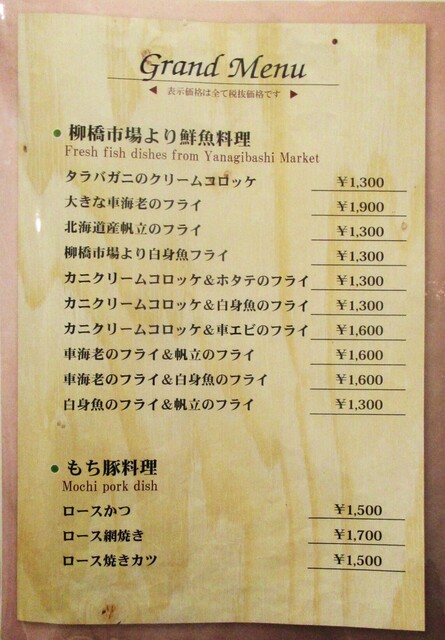 Grand Menu
◀ 表示価格は全て税抜価格です ▶
● 柳橋市場より鮮魚料理
Fresh fish dishes from Yanagibashi Market
タラバガニのクリームコロッケ ￥1,300
大きな車海老のフライ ￥1,900
北海道産帆立のフライ ￥1,300
柳橋市場より白身魚フライ ￥1,300
カニクリームコロッケ＆ホタテのフライ ￥1,300
カニクリームコロッケ＆白身魚のフライ ￥1,300
カニクリームコロッケ＆車エビのフライ ￥1,600
車海老のフライ＆帆立のフライ ￥1,600
車海老のフライ＆白身魚のフライ ￥1,600
白身魚のフライ＆帆立のフライ ￥1,300
● もち豚料理
Mochi pork dish
ロースかつ ￥1,500
ロース網焼き ￥1,700
ロース焼きカツ ￥1,500